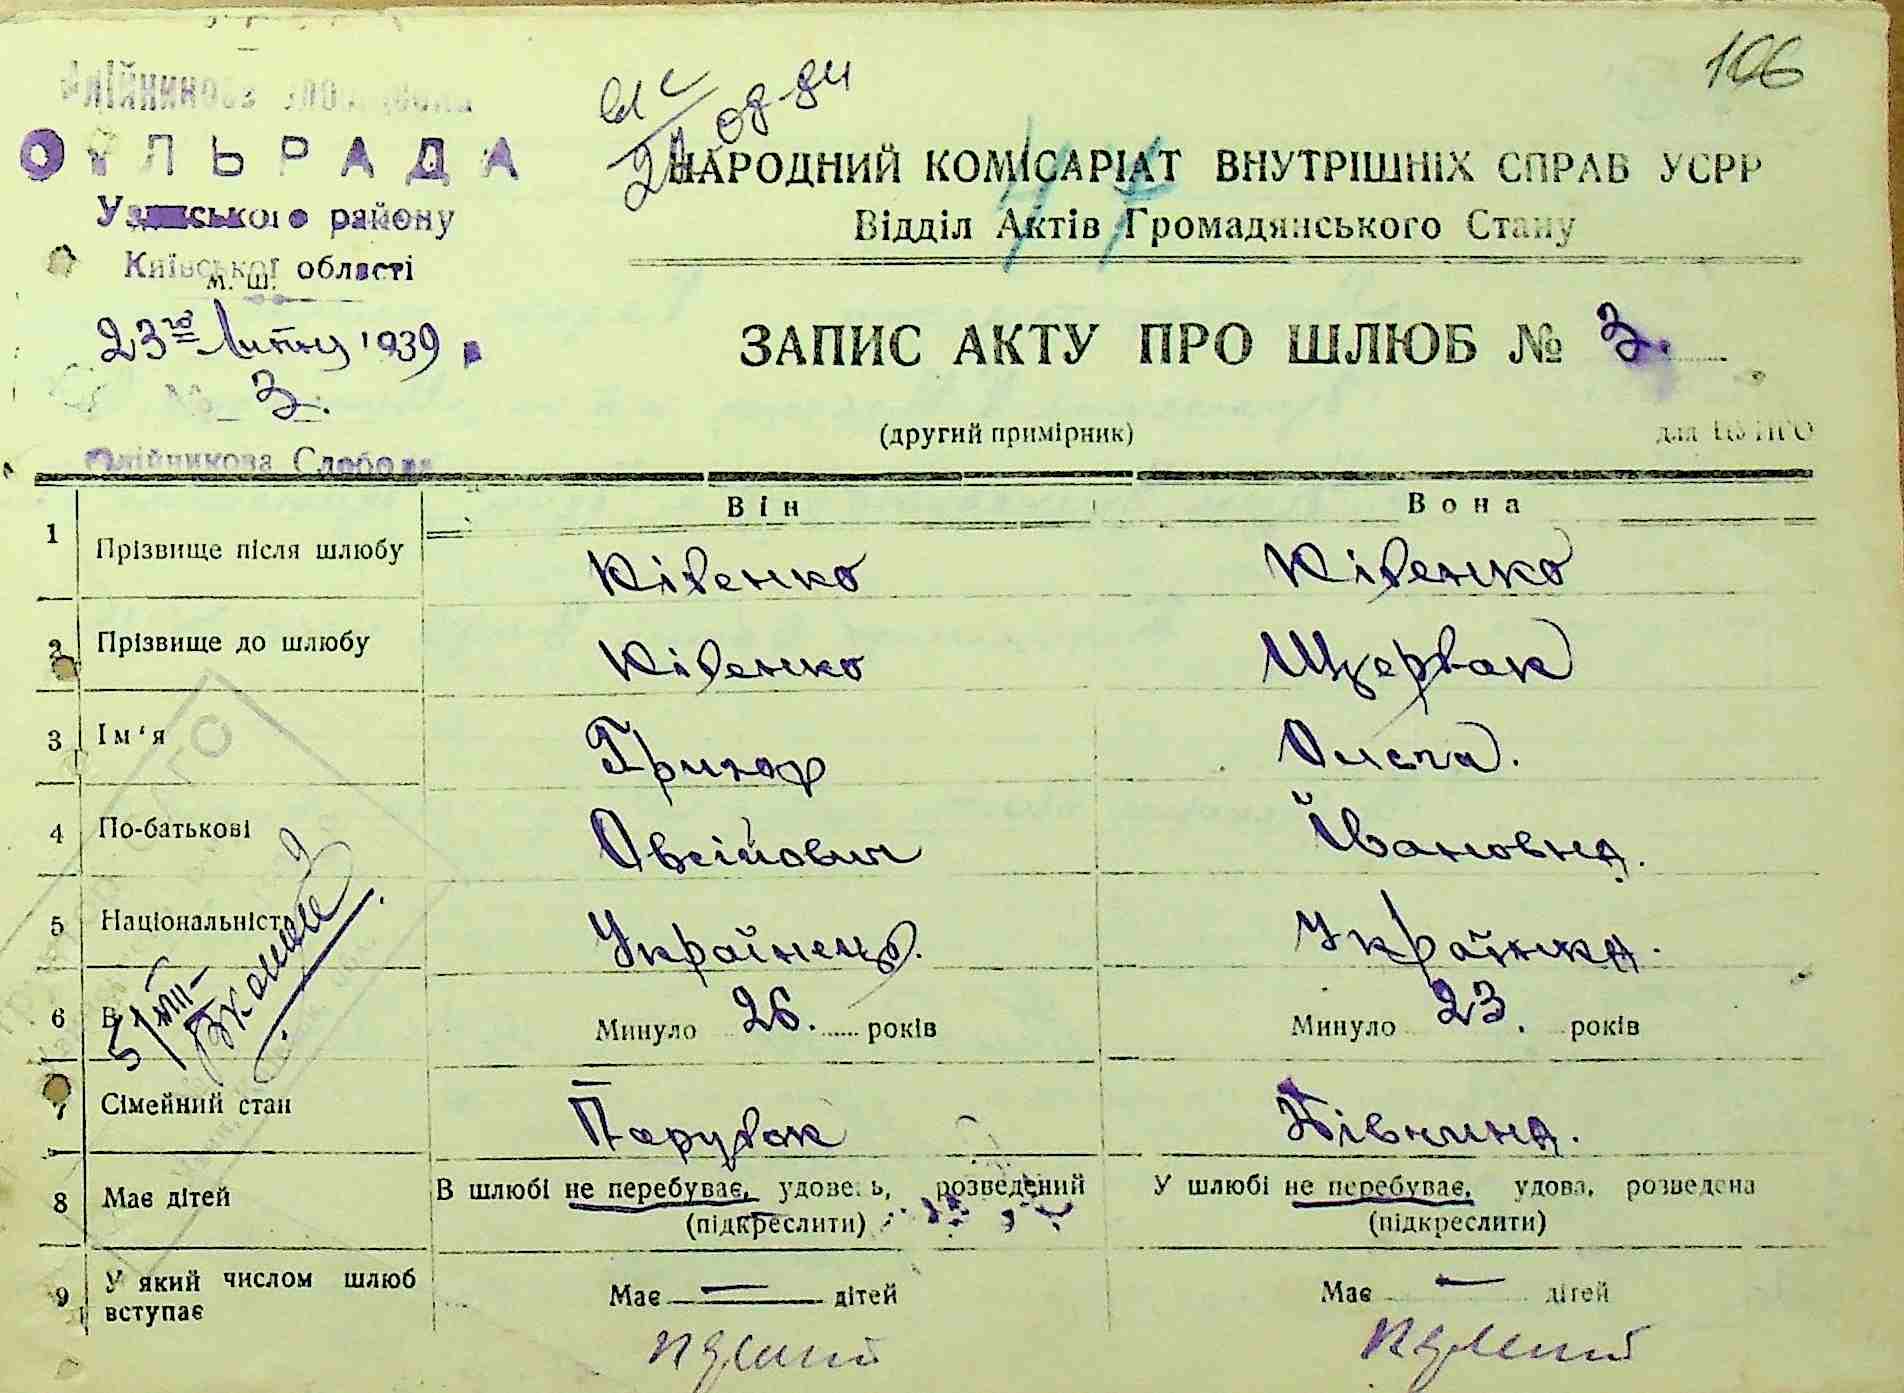 106
СІЛЬРАДА
Узинського району
Київської області
м. ш.
23го Лютня 1939
№ 3.
Олійникова Слобода
НАРОДНИЙ КОМІСАРІАТ ВНУТРІШНІХ СПРАВ УСРР
Відділ Актів Громадянського Стану
47
ЗАПИС АКТУ ПРО ШЛЮБ № 3.
(другий примірник)
для
Він Вона
1 Прізвище після шлюбу Ківенко Ківенко
2 Прізвище до шлюбу Ківенко Щербак
3 Ім'я Григор Олепа.
4 По-батькові Овсійович Йвановна.
5 Національність Українець. Українка.
6 В Минуло 26. років Минуло 23. років
5/VIII
7 Сімейний стан Парубок Дівчина.
8 Має дітей В шлюбі не перебуває, удовець, розведений У шлюбі не перебуває, удова, розведена
(підкреслити) (підкреслити)
9 У який числом шлюб вступає Має — дітей Має — дітей